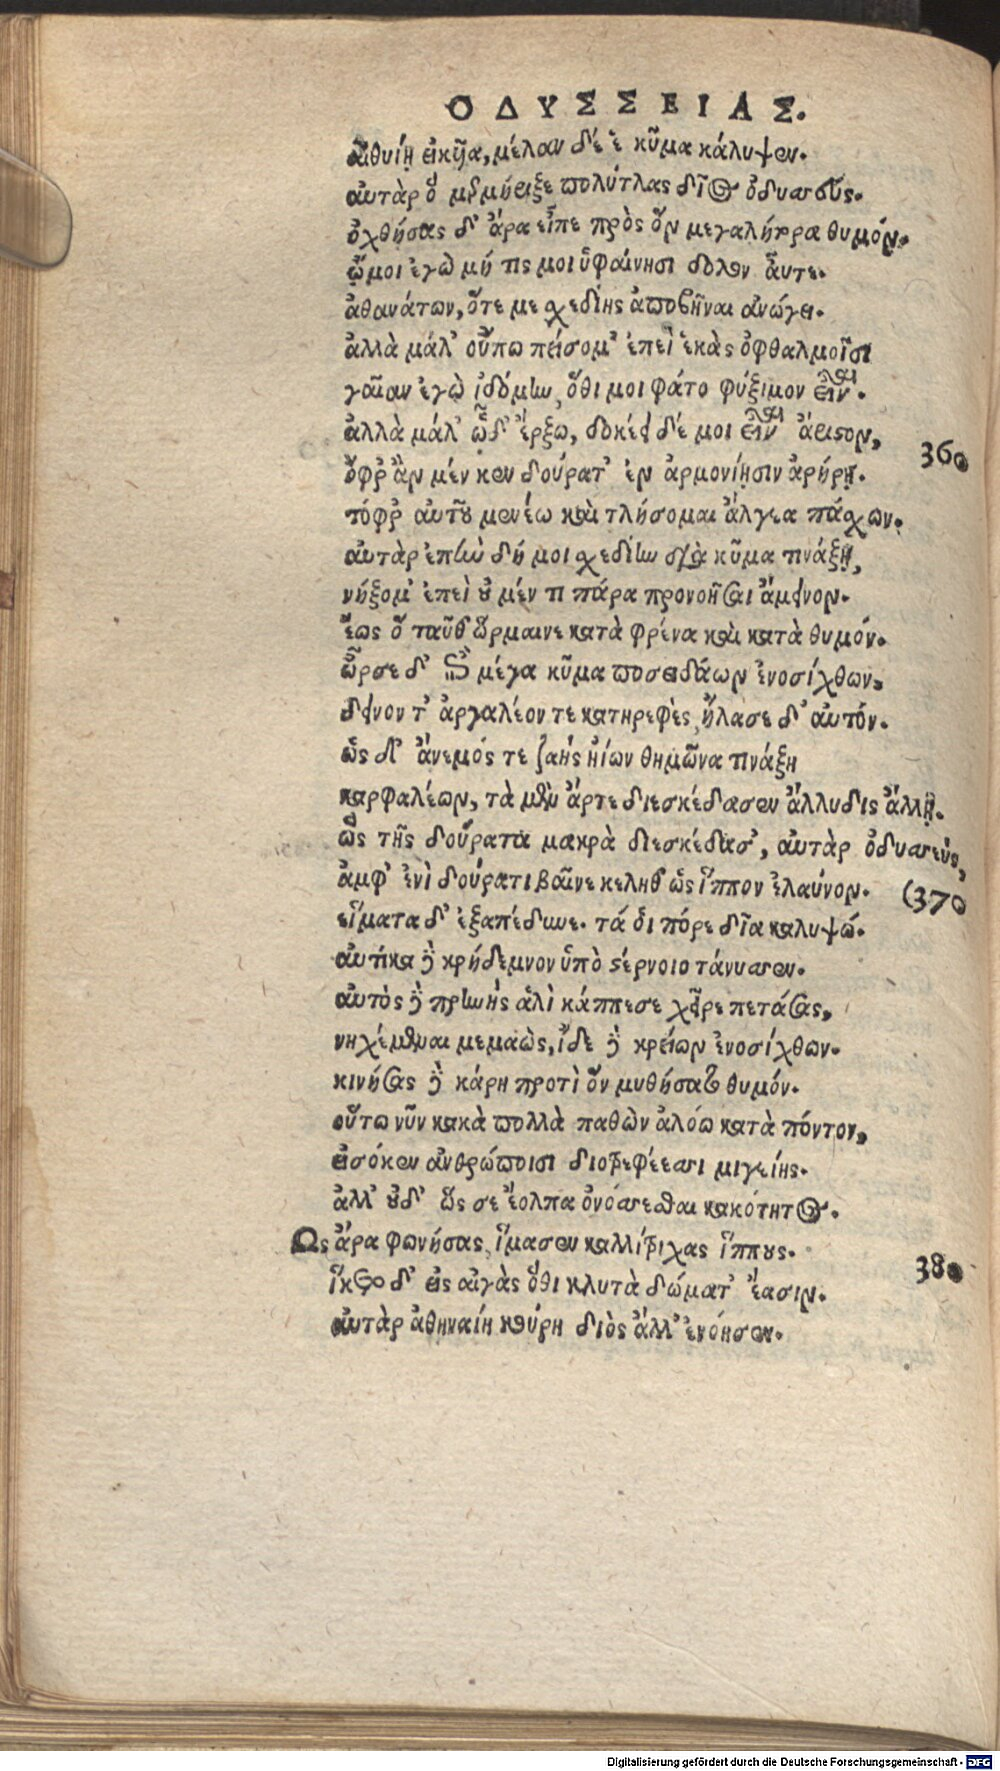 ΟΔΥΣΣΕΙΑΣ.
αἰθυίῃ εἰκῆα, μέλαν δέ ἑ κῦμα κάλυψεν.
αὐτὰρ ὅ μερμήριξε πολύτλας δῖος ὀδυσσεύς.
ὀχθήσας δ' ἄρα εἶπε πρὸς ὃν μεγαλήτορα θυμόν.
ᾤμοι ἐγὼ μή τις μοι ὑφαίνησι δόλον αὖτε.
ἀθανάτων, ὅτε με σχεδίης ἀποβῆναι ἀνώγει.
ἀλλὰ μάλ' οὔπω πείσομ' ἐπεὶ ἑκὰς ὀφθαλμοῖσι
γαῖαν ἐγὼ ἰδόμην, ὅθι μοι φάτο φύξιμον εἶναι.
ἀλλὰ μάλ' ὧδ' ἔρξω, δοκέει δέ μοι εἶναι ἄριστον,
360
ὄφρ' ἂν μέν κεν δούρατ' ἐν ἁρμονίῃσιν ἀρήρῃ.
τόφρ' αὐτοῦ μενέω καὶ τλήσομαι ἄλγεα πάσχων.
αὐτὰρ ἐπὴν δή μοι σχεδίην διὰ κῦμα τινάξῃ,
νήξομ' ἐπεὶ οὐ μέν τι πάρα προνοῆσαι ἄμεινον.
ἕως ὃ ταῦθ' ὥρμαινε κατὰ φρένα καὶ κατὰ θυμόν.
ὦρσε δ' ἐπὶ μέγα κῦμα ποσειδάων ἐνοσίχθων,
δεινόν τ' ἀργαλέον τε κατηρεφὲς, ἤλασε δ' αὐτόν.
ὡς δ' ἄνεμός τε ζαής ἠίων θημῶνα τινάξη
καρφαλέων, τὰ μὲν ἄρτε διεσκέδασεν ἄλλυδις ἄλλῃ.
ὣς τῆς δούρατα μακρὰ διεσκέδασ', αὐτὰρ ὀδυσσεύς,
ἀμφ' ἑνὶ δούρατι βαῖνε κέληθ' ὡς ἵππον ἐλαύνον.
(370
εἵματα δ' ἐξαπέδυνε. τά οἱ πόρε δῖα καλυψώ.
αὐτίκα δὲ κρήδεμνον ὑπὸ στέρνοιο τάνυσσεν.
αὐτὸς δὲ πρηνὴς ἁλὶ κάππεσε χεῖρε πετάσας,
νηχέμεναι μεμαὼς, ἴδε δὲ κρείων ἐνοσίχθων.
κινήσας δὲ κάρη προτὶ ὃν μυθήσατο θυμόν.
οὕτω νῦν κακὰ πολλὰ παθὼν ἀλόω κατὰ πόντον,
εἰσόκεν ἀνθρώποισι διοτρεφέεσσι μιγείης.
ἀλλ' οὐδ' ὥς σε ἔολπα ὀνόσσεσθαι κακότητος.
Ὣς ἄρα φωνήσας, ἵμασεν καλλίτριχας ἵππους.
380
ἵκετο δ' εἰς αἰγὰς ὅθι κλυτὰ δώματ' ἔασιν.
αὐτὰρ ἀθηναίη κούρη διὸς ἄλλ' ἐνόησεν.
Digitalisierung gefördert durch die Deutsche Forschungsgemeinschaft - DFG